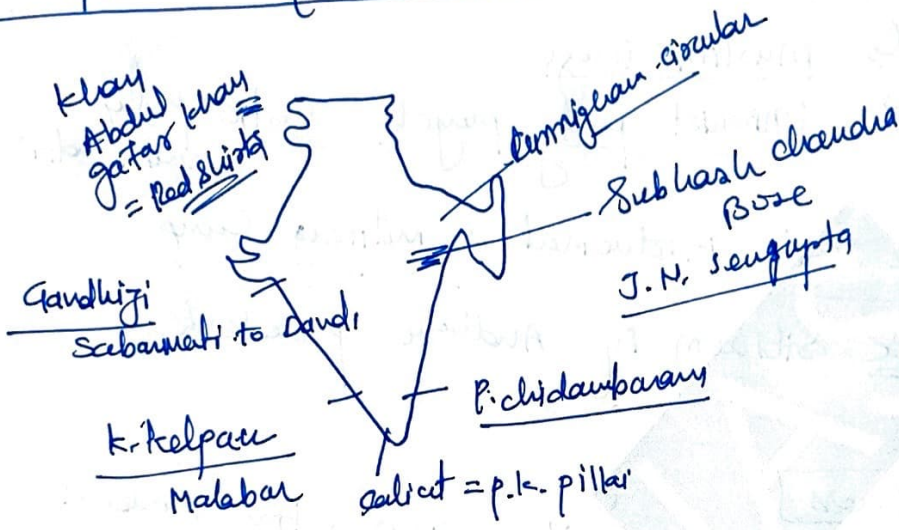 Khan
Abdul
gafar khan
= Red Shirts
Cunnighan circular
Subhash chandra
Bose
J.N. Sengupta
Gandhiji
Sabarmati to Dandi
P. chidambaram
K. Kelpan
Malabar
Calicut = p.k. pillai